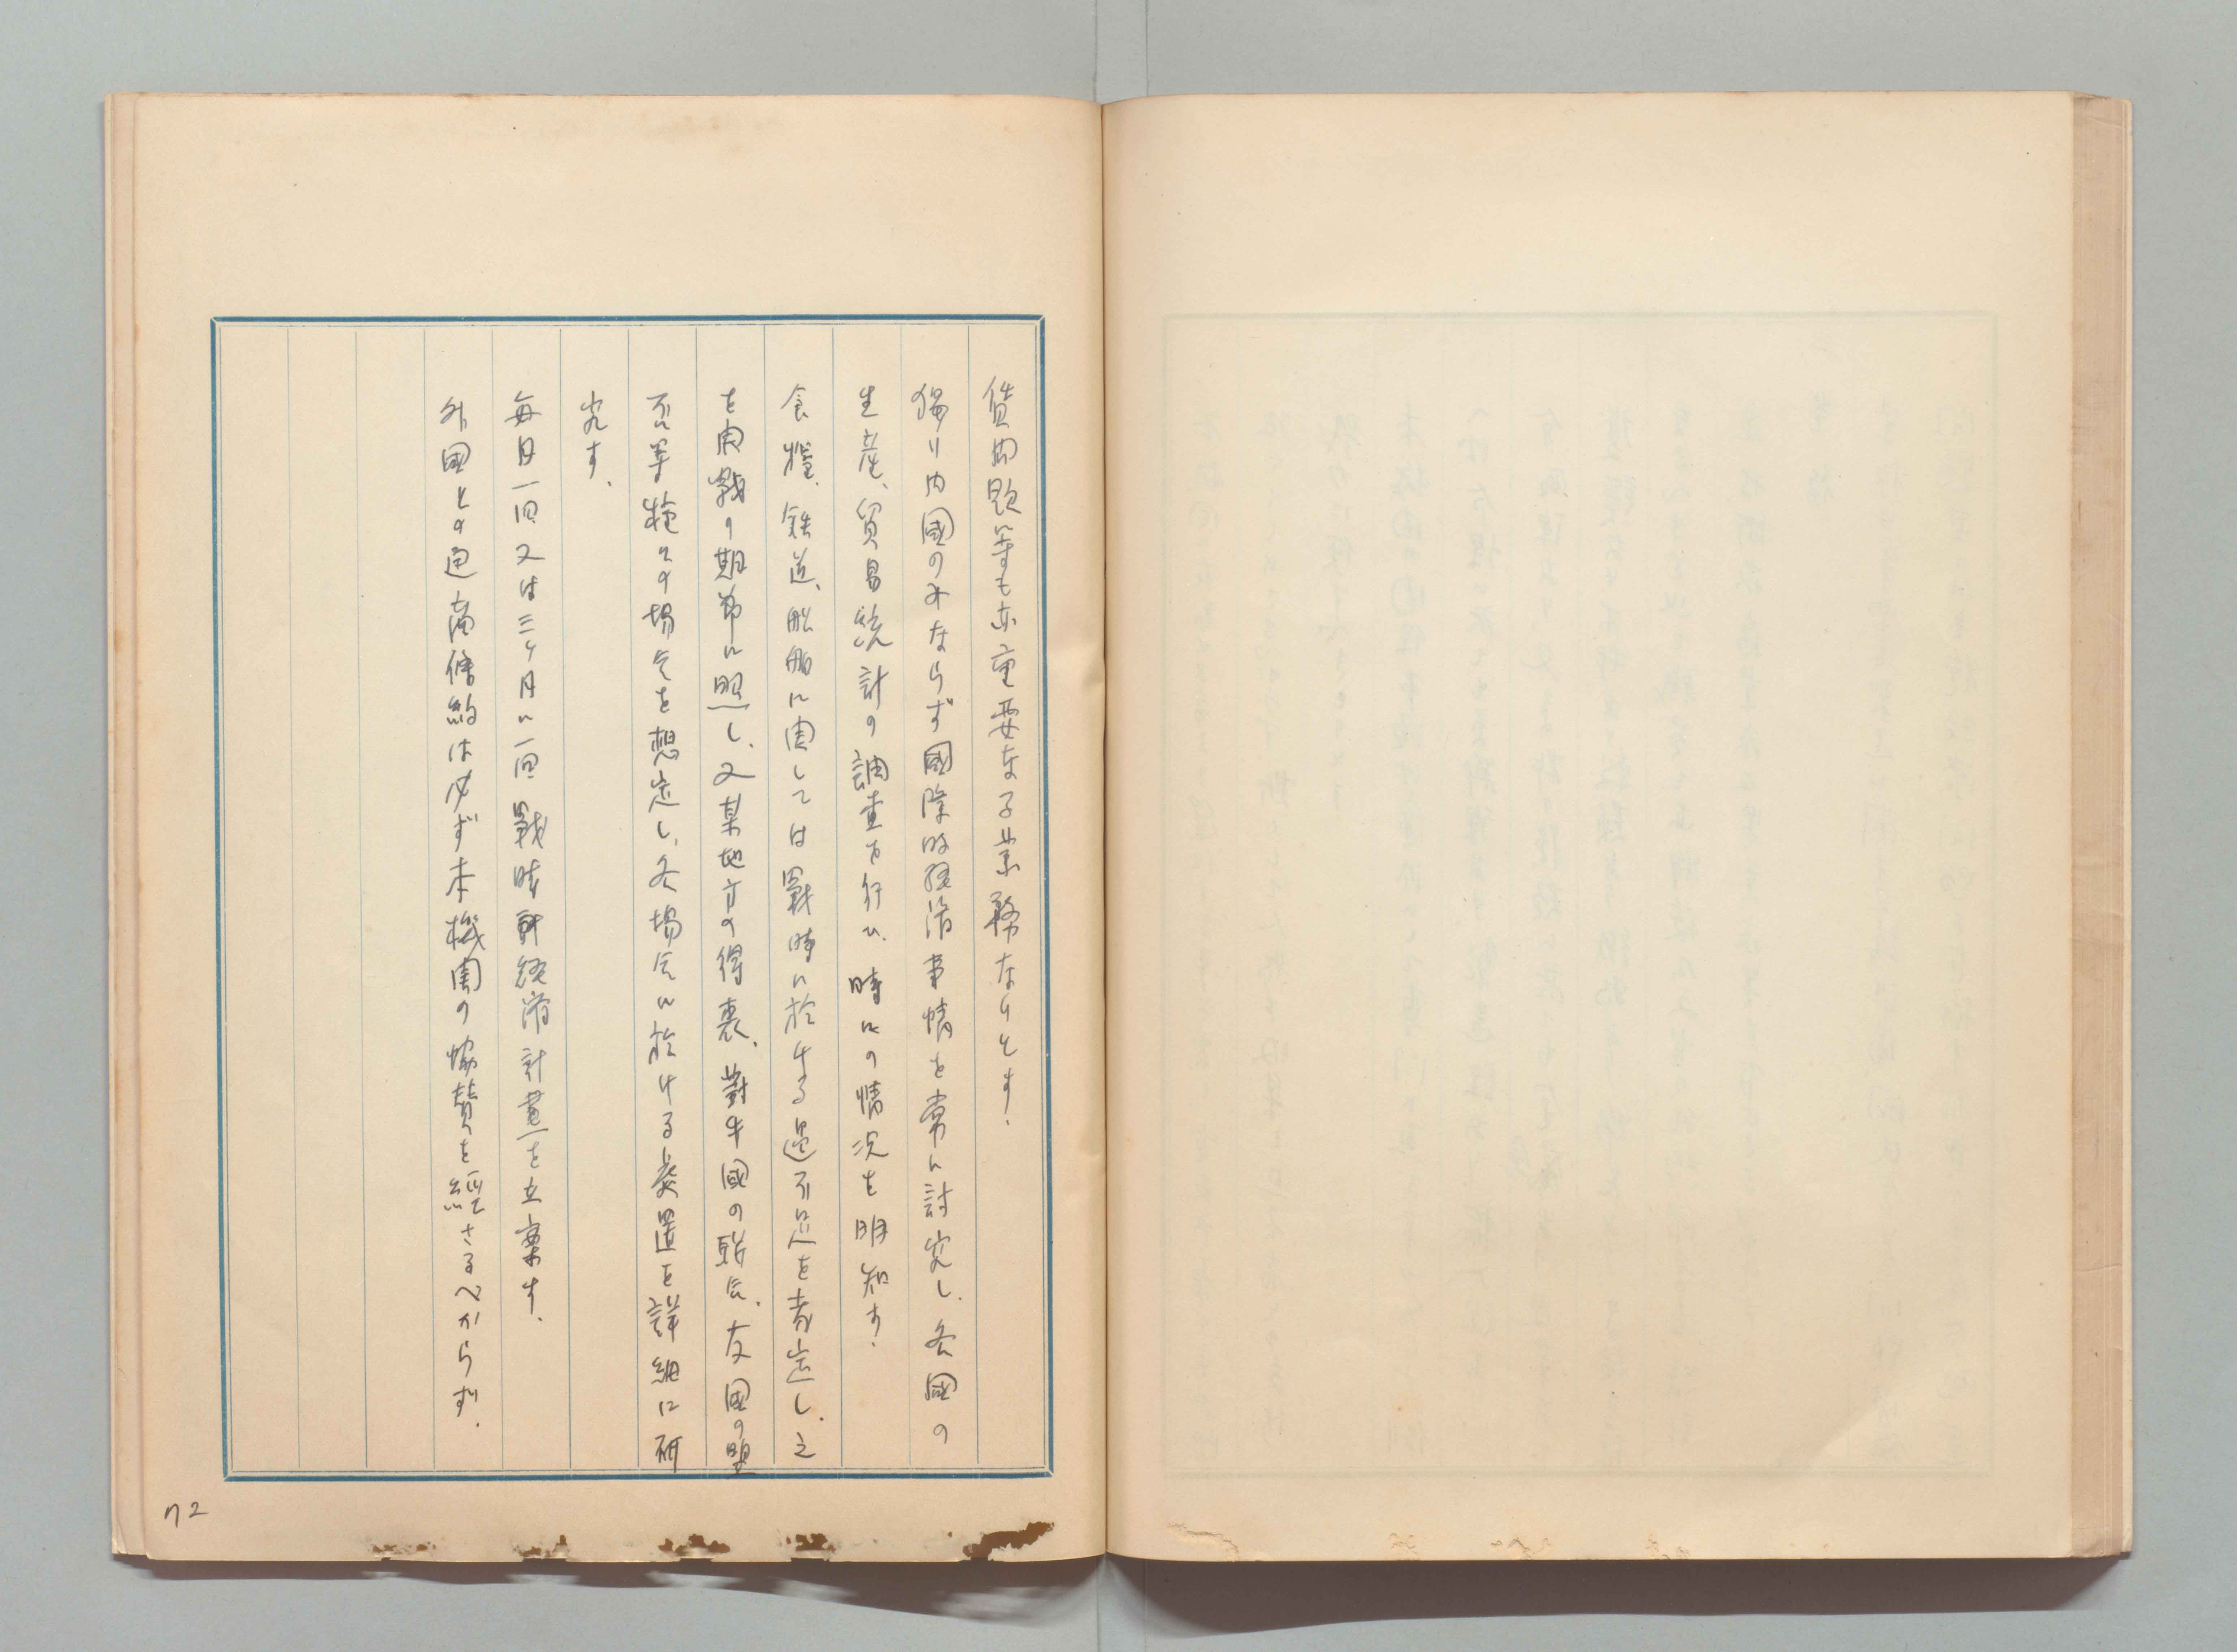 貨問題等も亦重要なる業務なりとす.
獨り内國のみならず國際的經済事情を常に討究し.各國の
生産、貿易統計の調査を行ひ.時々の情況を明知す.
食糧、鉄道、船舶に関しては戰時に於ける過不足を考定し.之
を開戰の期節に照し、又某地方の得喪.對手國の聯合.友國の盟
不等種々の場合を想定し.各場合に於ける処置を詳細に研
究す.
毎月一回又は三ヶ月に一回戰時経済計畫を立案す.
外國との通商條約は必ず本機関の協賛を經さるべからず.
72